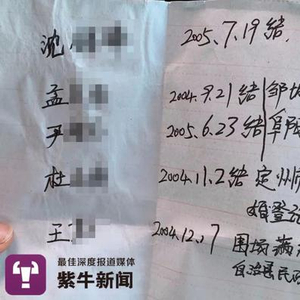 沈 2005.7.19结
孟 2004.9.21结 邹城
尹 2005.6.23结 阜阳
杜 2004.11.2结 定州市
婚登记
王 2004.12.17 围场满
自治县民政
最佳深度报道媒体
紫牛新闻